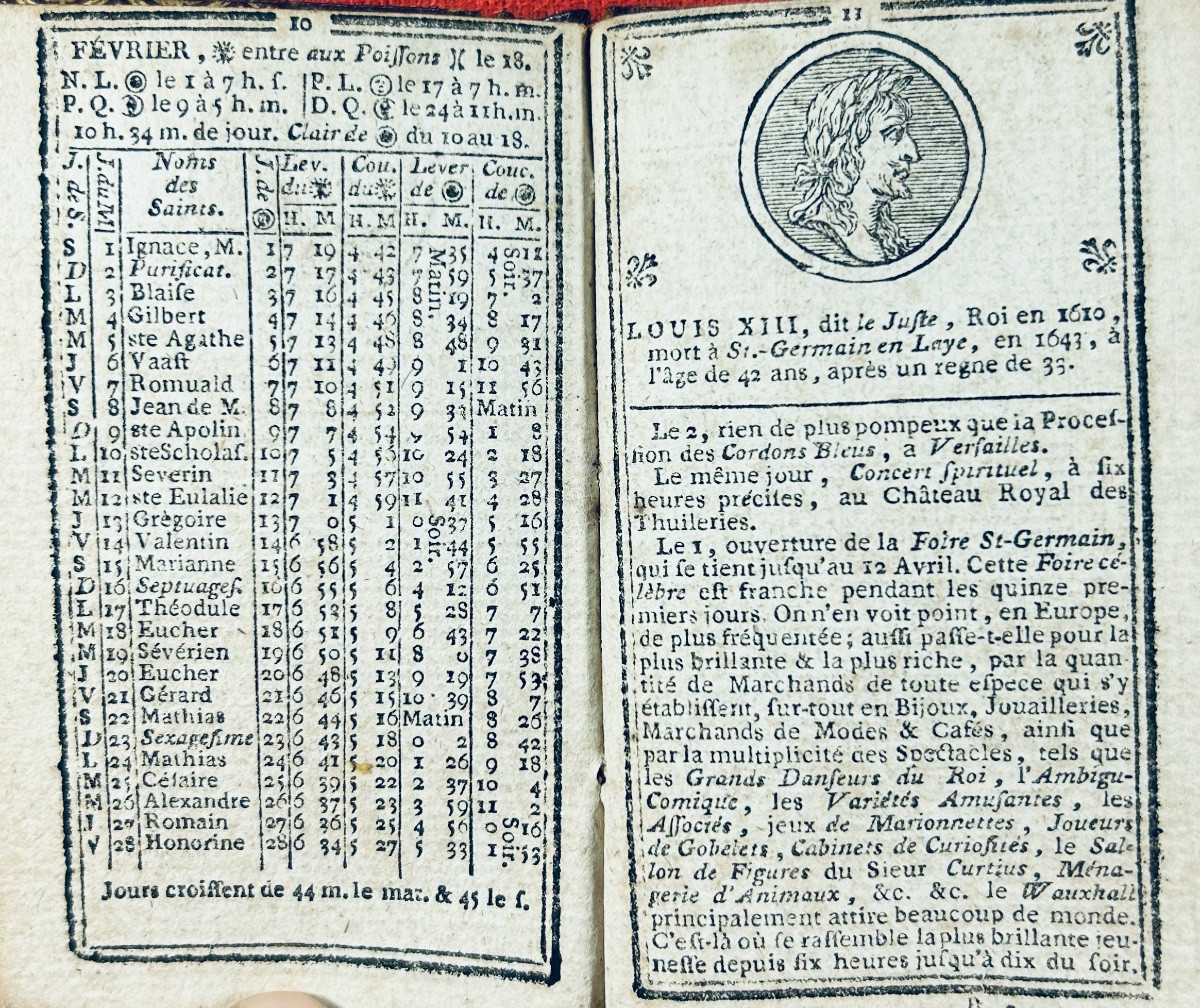 10
FÉVRIER, entre aux Poiſſons )( le 18.
N. L. le 1 à 7 h. ſ. P. L. le 17 à 7 h. m.
P. Q. le 9 à 5 h. m. D. Q. le 24 à 11 h. m.
10 h. 34 m. de jour. Clair de du 10 au 18.
J. de S. J. du M Noms des Saints. J. de Lev. du Cou. du Lever de Couc. de
H. M H. M H. M. H. M.
S 1 Ignace, M. 1 7 19 4 42 7 35 4 11
D 2 Purificat. 2 7 17 4 43 7 59 5 37
L 3 Blaiſe 3 7 16 4 45 8 19 7 2
M 4 Gilbert 4 7 14 4 46 8 34 8 17
M 5 ste Agathe 5 7 13 4 48 8 48 9 31
J 6 Vaaſt 6 7 11 4 49 9 1 10 43
V 7 Romuald 7 7 10 4 51 9 15 11 56
S 8 Jean de M. 8 7 8 4 52 9 32 Matin
D 9 ste Apolin 9 7 7 4 54 9 54 1 8
L 10 ste Scholaſ. 10 7 5 4 56 10 24 2 18
M 11 Severin 11 7 3 4 57 10 55 3 27
M 12 ste Eulalie 12 7 1 4 59 11 41 4 28
J 13 Grègoire 13 7 0 5 1 0 37 5 16
V 14 Valentin 14 6 58 5 2 1 44 5 55
S 15 Marianne 15 6 56 5 4 2 57 6 25
D 16 Septuageſ. 16 6 55 5 6 4 12 6 51
L 17 Théodule 17 6 53 5 8 5 28 7 7
M 18 Eucher 18 6 51 5 9 6 43 7 22
M 19 Sévérien 19 6 50 5 11 8 0 7 38
J 20 Eucher 20 6 48 5 13 9 19 7 53
V 21 Gérard 21 6 46 5 15 10 39 8 7
S 22 Mathias 22 6 44 5 16 Matin 8 26
D 23 Sexageſime 23 6 43 5 18 0 2 8 42
L 24 Mathias 24 6 41 5 20 1 26 9 18
M 25 Céſaire 25 6 39 5 22 2 37 10 4
M 26 Alexandre 26 6 37 5 23 3 59 11 2
J 27 Romain 27 6 36 5 25 4 56 0 16
V 28 Honorine 28 6 34 5 27 5 33 1 53
Matin.
Soir.
Soir.
Soir.
Jours croiſſent de 44 m. le mat. & 45 le ſ.
11
LOUIS XIII, dit le Juſte, Roi en 1610,
mort à St.-Germain en Laye, en 1643, à
l'âge de 42 ans, après un regne de 33.
Le 2, rien de plus pompeux que la Proceſ-
ſion des Cordons Bleus, a Verſailles.
Le même jour, Concert ſpirituel, à ſix
heures préciſes, au Château Royal des
Thuileries.
Le 1, ouverture de la Foire St-Germain,
qui ſe tient juſqu'au 12 Avril. Cette Foire cé-
lèbre eſt franche pendant les quinze pre-
miers jours. On n'en voit point, en Europe,
de plus fréquentée; auſſi paſſe-t-elle pour la
plus brillante & la plus riche, par la quan-
tité de Marchands de toute eſpece qui s'y
établiſſent, ſur-tout en Bijoux, Jouailleries,
Marchands de Modes & Cafés, ainſi que
par la multiplicité des Spectacles, tels que
les Grands Danſeurs du Roi, l'Ambigu-
Comique, les Variétés Amuſantes, les
Aſſociés, jeux de Marionnettes, Joueurs
de Gobelets, Cabinets de Curioſités, le Sal-
lon de Figures du Sieur Curtius, Ména-
gerie d'Animaux, &c. &c. le Wauxhall
principalement attire beaucoup de monde.
C'eſt-là où ſe raſſemble la plus brillante jeu-
neſſe depuis ſix heures juſqu'à dix du ſoir.